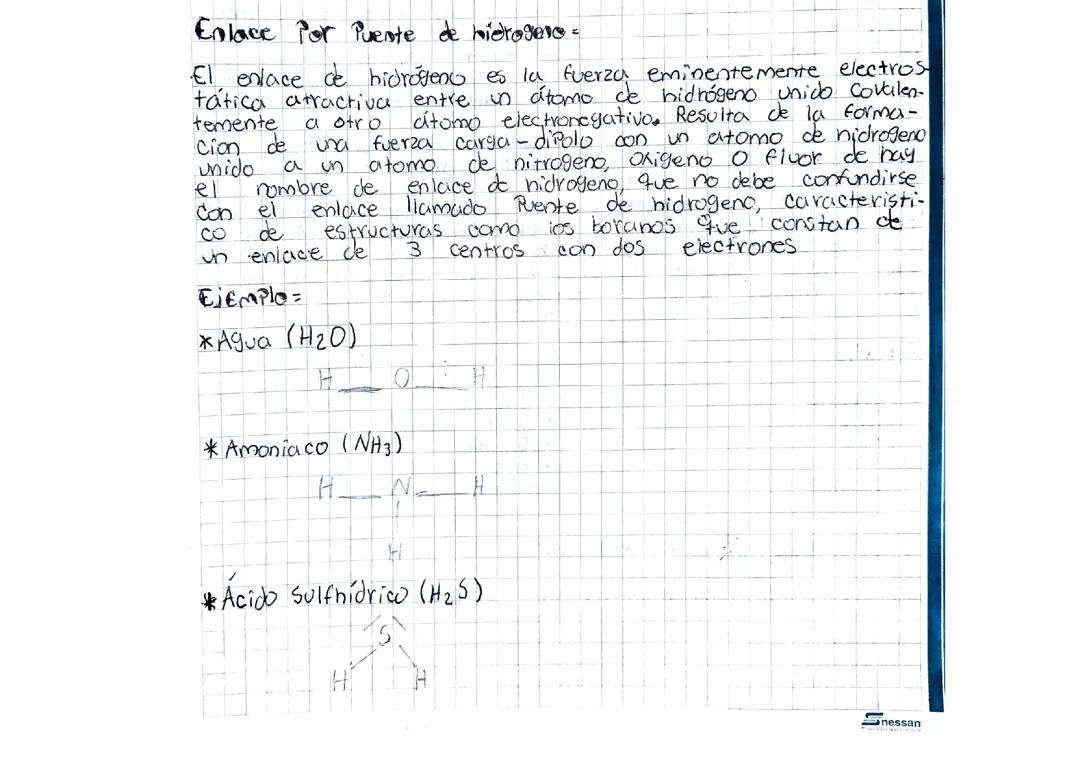 Enlace Por Puente de hidrogeno=
El enlace de hidrógeno es la fuerza eminentemente electros-
tática atractiva entre un átomo de hidrógeno unido covalen-
temente a otro átomo electronegativo. Resulta de la forma-
cion de una fuerza carga-dipolo con un atomo de hidrogeno
unido a un atomo de nitrogeno, oxigeno o fluor de hay
el nombre de enlace de hidrogeno, que no debe confundirse
con el enlace llamado Puente de hidrogeno, caracteristi-
co de estructuras como los boranos que constan de
un enlace de 3 centros con dos electrones
Ejemplo=
*Agua (H2O)
H O H
* Amoniaco (NH3)
H N H
H
*Ácido sulfhídrico (H2S)
S
H H
nessan